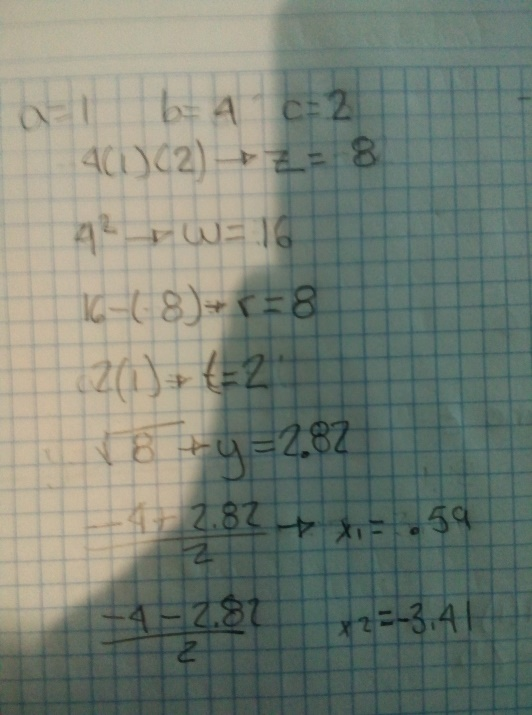 a=1 b=4 c=2
4(1)(2) → z = 8
4² → w=16
16-(8) → r=8
2(1) → t=2
√8 → y=2.82
-4+2.82/2 → x₁= .59
-4-2.82/2 x2=-3.41